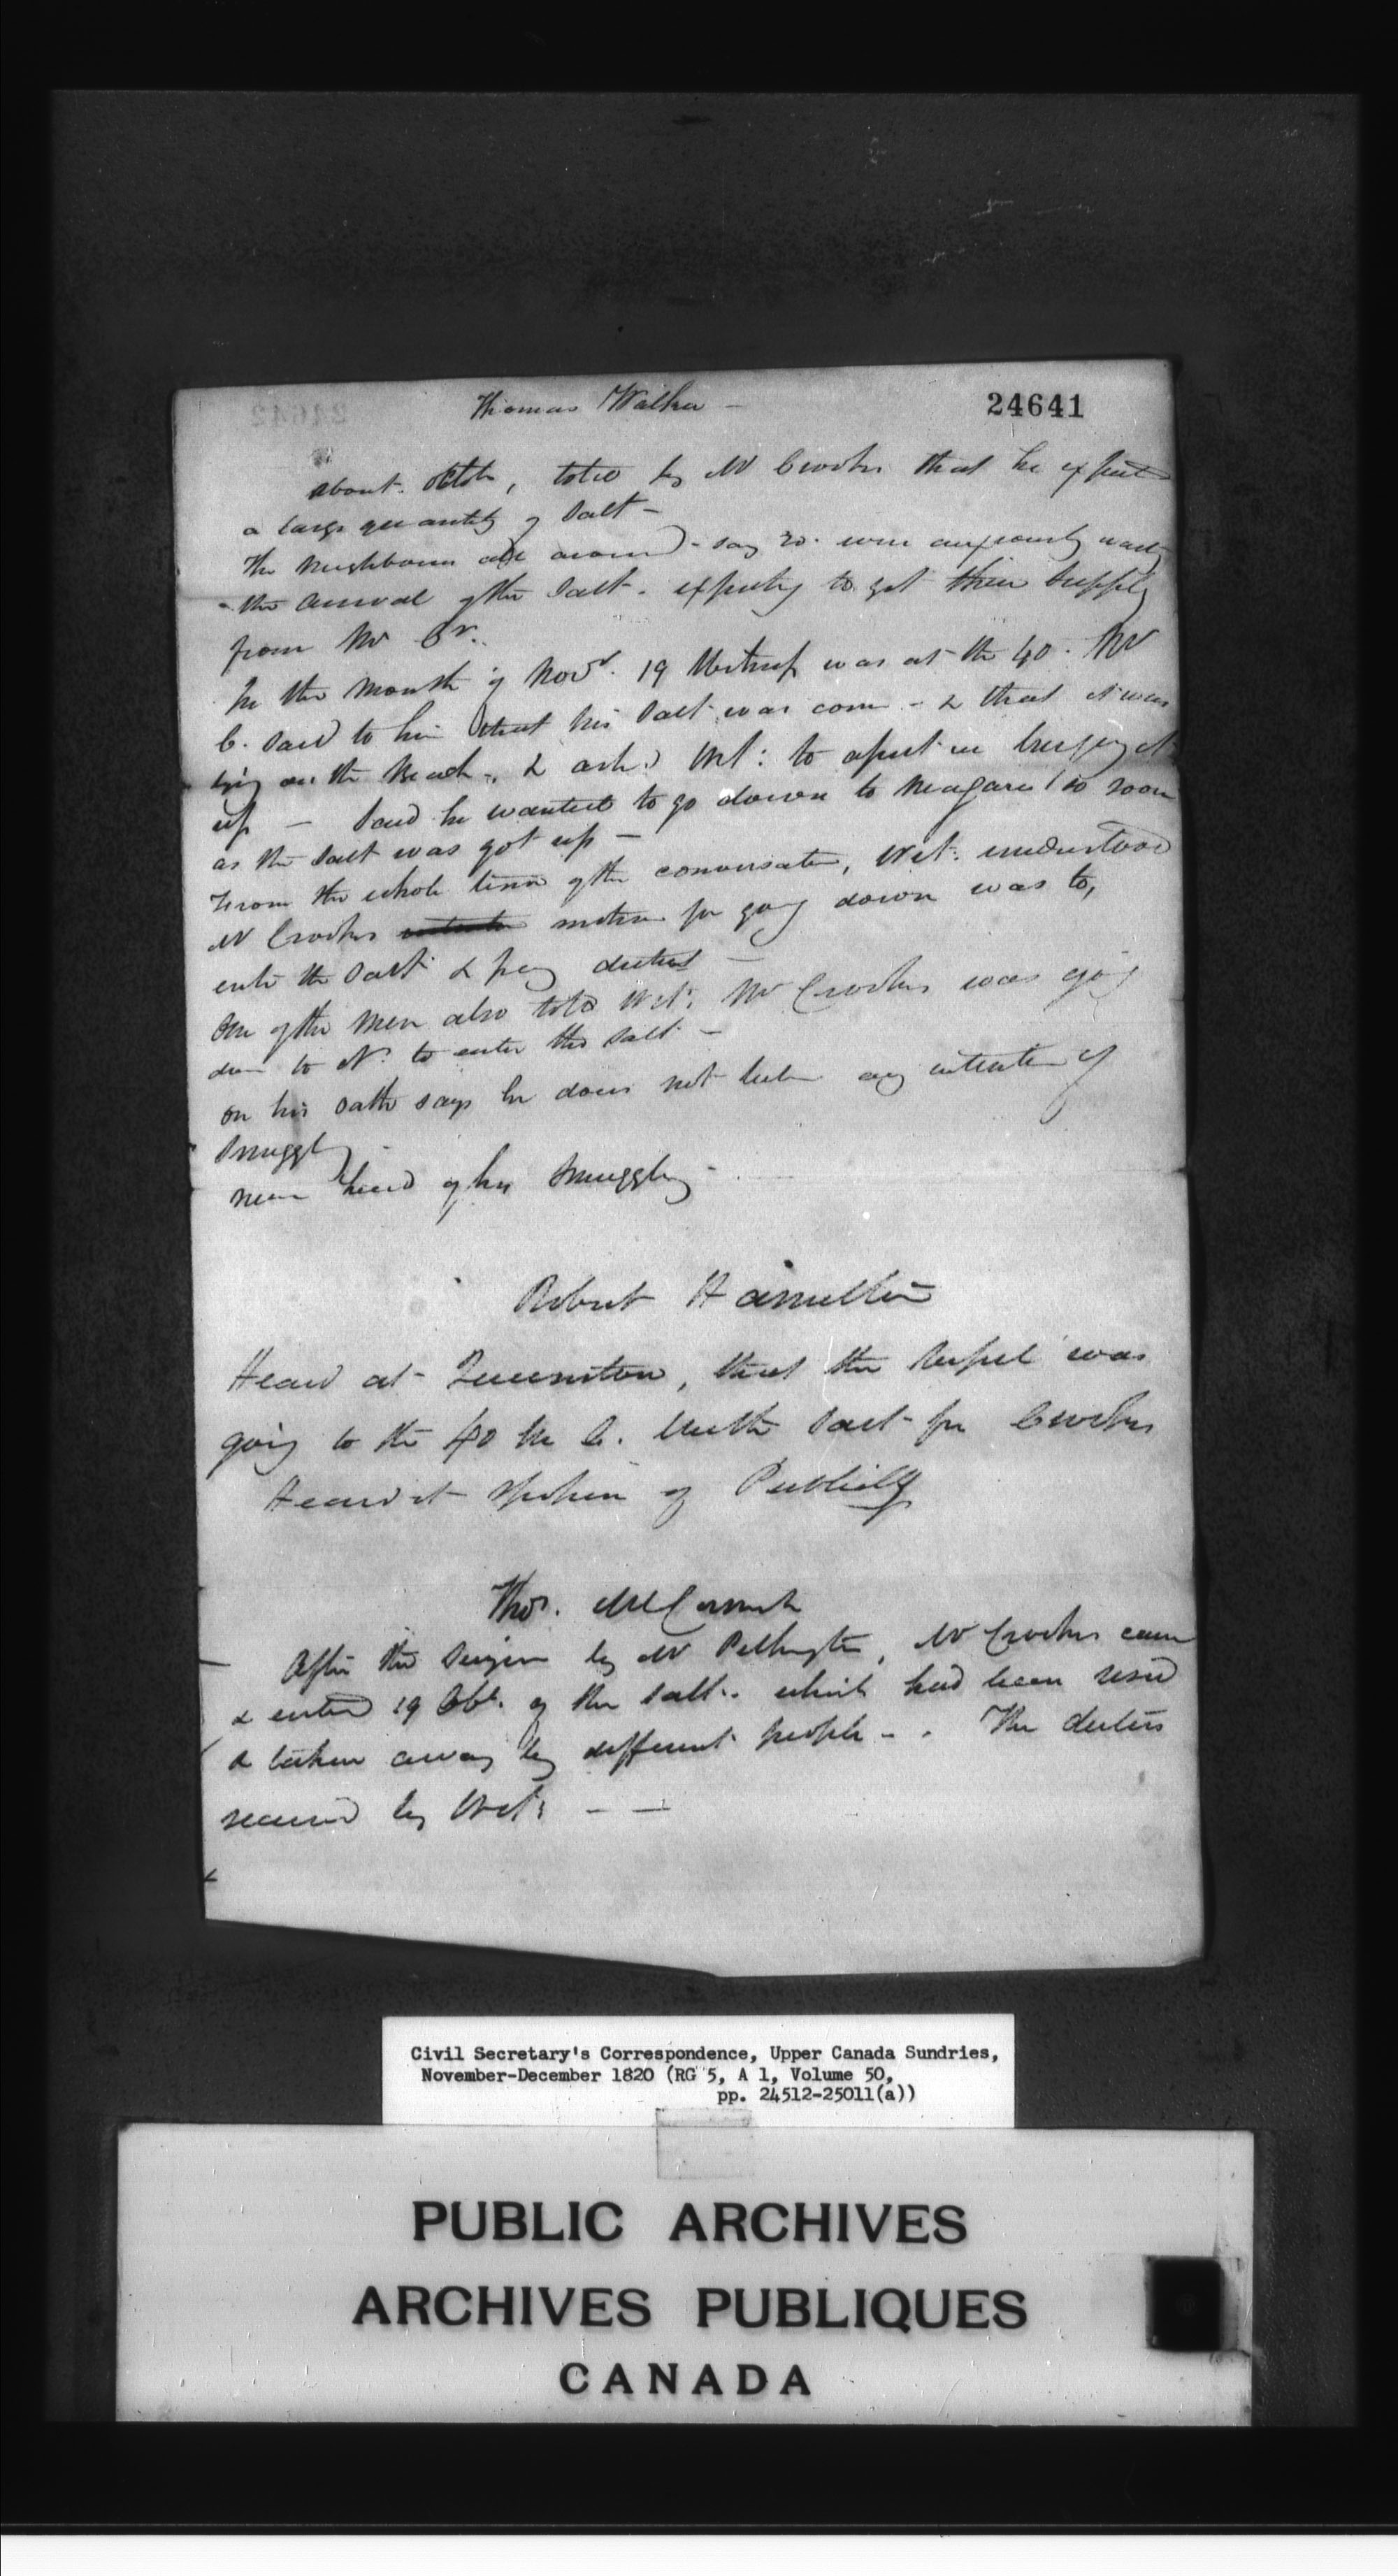 Thomas Walker –
24641
about Octob, told by Mr Crooks that he expected
a large quantity of Salt –
The Neighbours all around – say 20. were anxiously waitg
the arrival of the Salt – expectg to get their supply
from Mr Cr.
In the Month of Novr. 19 Witness was at the 40. Mr
C. said to him that his Salt was come – & that it was
lyig on the Beach –, & askd Wit: to assist in bringing it
up – Said he wanted to go down to Niagara so soon
as the Salt was got up –
From the whole tenor of the conversation, Wit: understood
Mr Crooks motive for going down was to,
enter the Salt & pay duties –
One of the Men also told Wit: Mr Crooks was goig
down to N. to enter the Salt –
on his oath says he does not believe any intention of
Smugglg –
never heard of his Smugglig –
Robert Hamilton
Heard at Queenston, that the Vessel was
going to the 40 M C. with Salt for Crooks
Heard it spoken of Publicly
Thos. McCormick
After the Seizure by Mr Pilkington, Mr Crooks came
& enterd 19 bbls. of the Salt – which had been used
& taken away by different people – . The duties
received by Wit: – —
Civil Secretary's Correspondence, Upper Canada Sundries,
November-December 1820 (RG 5, A 1, Volume 50,
pp. 24512-25011(a))
PUBLIC ARCHIVES
ARCHIVES PUBLIQUES
CANADA